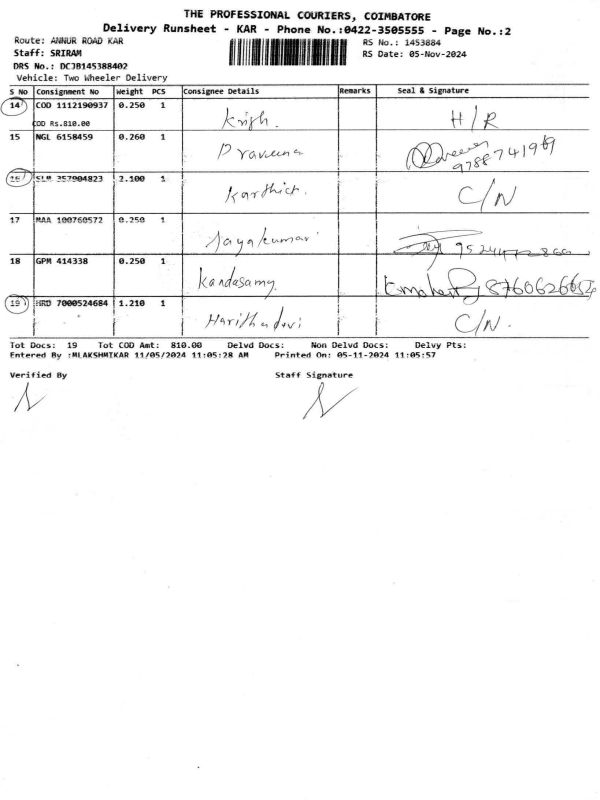 THE PROFESSIONAL COURIERS, COIMBATORE
Delivery Runsheet - KAR - Phone No.:0422-3505555 - Page No.:2
Route: ANNUR ROAD KAR RS No.: 1453884
Staff: SRIRAM RS Date: 05-Nov-2024
DRS No.: DCJB145388402
Vehicle: Two Wheeler Delivery
S No Consignment No Weight PCS Consignee Details Remarks Seal & Signature
14 COD 1112190937 0.250 1 Krish. H/R
COD Rs.810.00
15 NGL 6158459 0.260 1 Praveena
16 SLM 357904823 2.100 1 Karthick C/N
17 MAA 100760572 0.250 1 Jayakumar
18 GPM 414338 0.250 1 Kandasamy
19 HRD 7000524684 1.210 1 Harithadevi C/N.
Tot Docs: 19 Tot COD Amt: 810.00 Delvd Docs: Non Delvd Docs: Delvy Pts:
Entered By :MLAKSHMIKAR 11/05/2024 11:05:28 AM Printed On: 05-11-2024 11:05:57
Verified By Staff Signature